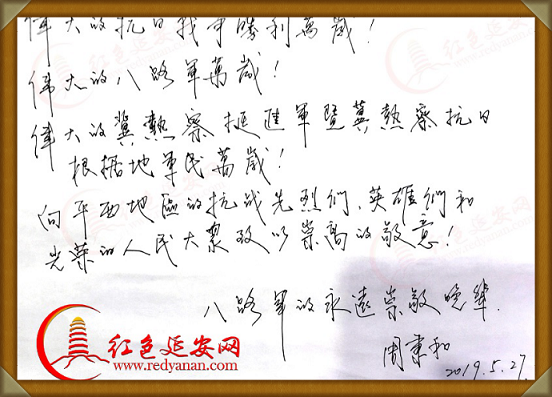 伟大的抗日战争勝利萬歲!
偉大的八路軍萬歲!
偉大的冀熱察挺進軍暨冀熱察抗日
根据地军民萬歲!
向平西地區的抗战先烈們、英雄們和
光荣的人民大衆致以崇高的敬意!
八路軍的永遠崇敬晚辈.
周秉和
2019.5.27.
红色延安网
www.redyanan.com